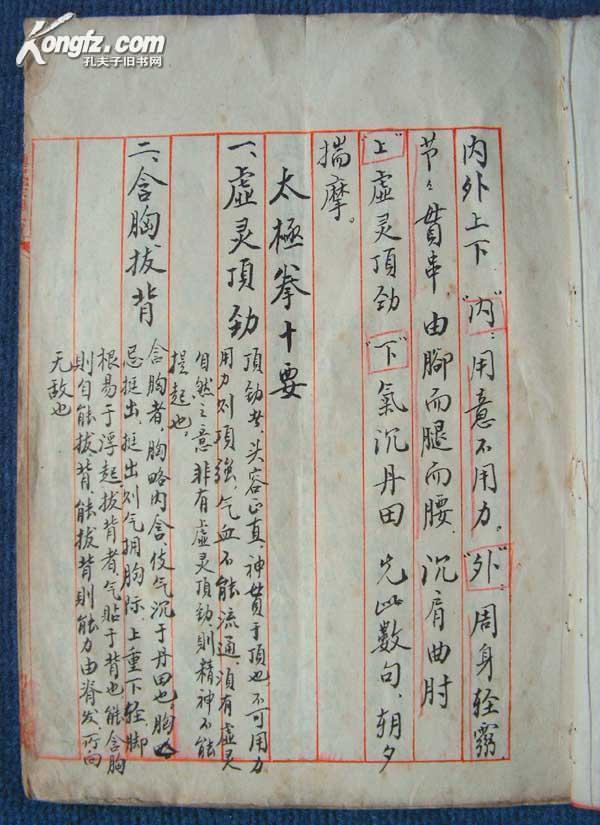 Kongfz.com
孔夫子旧书网
内外上下 "内":用意不用力。"外":周身轻灵
节々贯串 由腳而腿而腰、沉肩曲肘
"上"虚灵頂劲 "下"氣沉丹田 先此數句、朝夕
揣摩。
太極拳十要
一、虚灵頂劲
頂劲者、头容正直、神贯于頂也、不可用力
用力则項強、气血不能流通、須有虚灵
自然之意、非有虚灵頂劲、则精神不能
提起也、
二、含胸拔背
含胸者、胸略内含、使气沉于丹田也、胸
忌挺出、挺出则气拥胸际、上重下轻、脚
根易于浮起、拔背者、气贴于背也、能含胸
則自能拔背、能拔背則能力由脊发、所向
无敌也